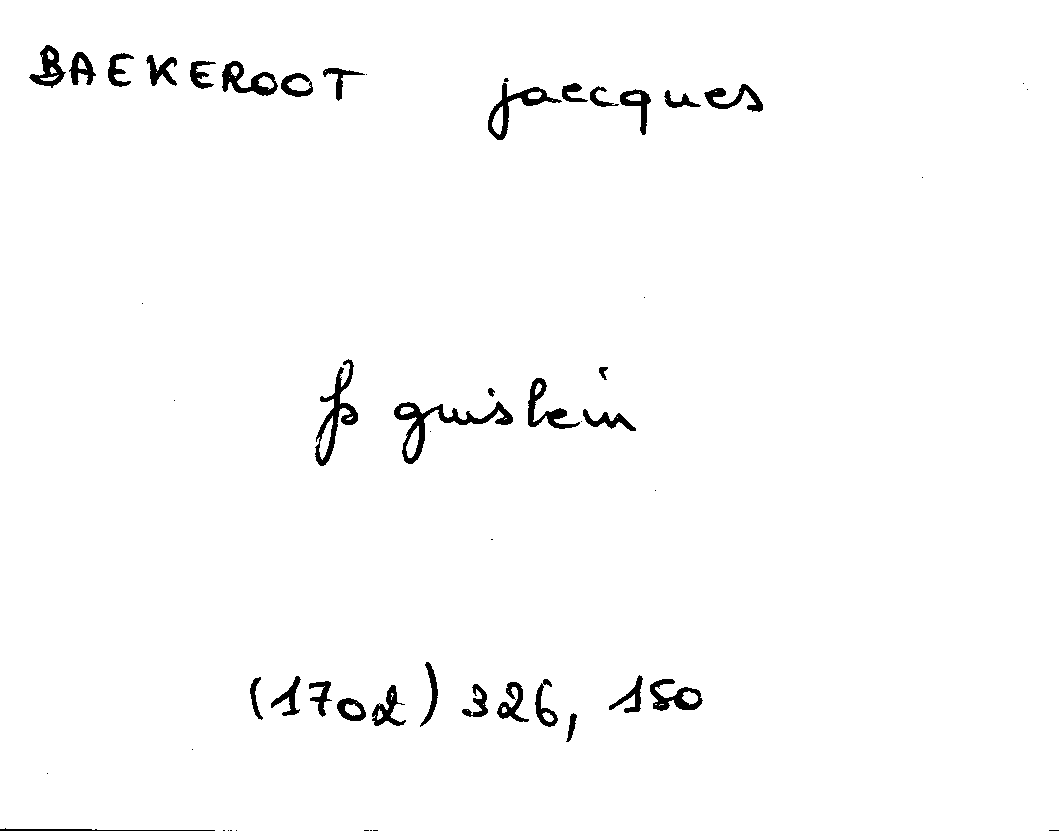 BAEKEROOT jaecques
fs guislein
(1702) 326, 150